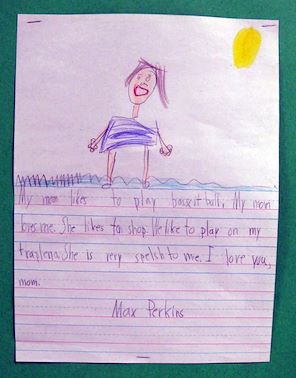 My mom likes to play bassit ball. My mom
loves me. She likes to shop. We like to play on my
traplena. She is very spelsh to me. I love you,
mom.
Max Perkins